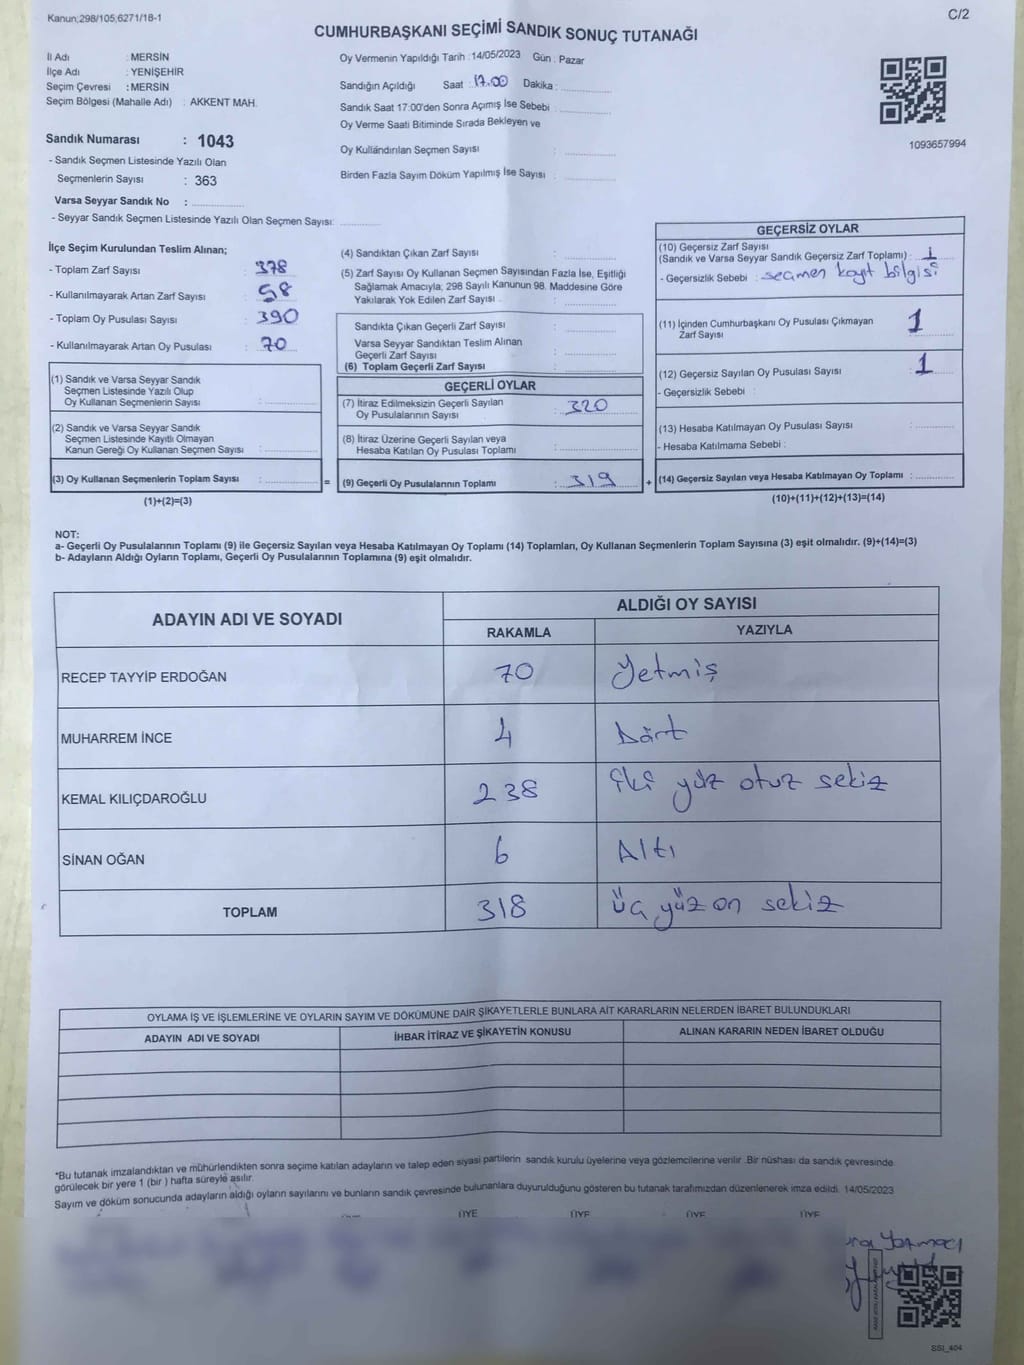 Kanun;298/105;6271/18-1
C/2
CUMHURBAŞKANI SEÇİMİ SANDIK SONUÇ TUTANAĞI
İl Adı : MERSİN
İlçe Adı : YENİŞEHİR
Seçim Çevresi : MERSİN
Seçim Bölgesi (Mahalle Adı) : AKKENT MAH.
Oy Vermenin Yapıldığı Tarih :14/05/2023 Gün : Pazar
Sandığın Açıldığı Saat : 17.00 Dakika :
Sandık Saat 17:00'den Sonra Açımış İse Sebebi :
Oy Verme Saati Bitiminde Sırada Bekleyen ve
Oy Kullandırılan Seçmen Sayısı :
Birden Fazla Sayım Döküm Yapılmış İse Sayısı :
1093657994
Sandık Numarası : 1043
- Sandık Seçmen Listesinde Yazılı Olan
Seçmenlerin Sayısı : 363
Varsa Seyyar Sandık No :
- Seyyar Sandık Seçmen Listesinde Yazılı Olan Seçmen Sayısı:
İlçe Seçim Kurulundan Teslim Alınan;
- Toplam Zarf Sayısı : 378
- Kullanılmayarak Artan Zarf Sayısı : 58
- Toplam Oy Pusulası Sayısı : 390
- Kullanılmayarak Artan Oy Pusulası : 70
(1) Sandık ve Varsa Seyyar Sandık
Seçmen Listesinde Yazılı Olup
Oy Kullanan Seçmenlerin Sayısı :
(2) Sandık ve Varsa Seyyar Sandık
Seçmen Listesinde Kayıtlı Olmayan
Kanun Gereği Oy Kullanan Seçmen Sayısı :
(3) Oy Kullanan Seçmenlerin Toplam Sayısı :
(1)+(2)=(3)
(4) Sandıktan Çıkan Zarf Sayısı :
(5) Zarf Sayısı Oy Kullanan Seçmen Sayısından Fazla İse, Eşitliği
Sağlamak Amacıyla; 298 Sayılı Kanunun 98. Maddesine Göre
Yakılarak Yok Edilen Zarf Sayısı :
Sandıkta Çıkan Geçerli Zarf Sayısı :
Varsa Seyyar Sandıktan Teslim Alınan
Geçerli Zarf Sayısı :
(6) Toplam Geçerli Zarf Sayısı :
GEÇERLİ OYLAR
(7) İtiraz Edilmeksizin Geçerli Sayılan
Oy Pusulalarının Sayısı : 320
(8) İtiraz Üzerine Geçerli Sayılan veya
Hesaba Katılan Oy Pusulası Toplamı :
= (9) Geçerli Oy Pusulalarının Toplamı : 319
GEÇERSİZ OYLAR
(10) Geçersiz Zarf Sayısı
(Sandık ve Varsa Seyyar Sandık Geçersiz Zarf Toplamı) : 1
- Geçersizlik Sebebi : seçmen kayıt bilgisi
(11) İçinden Cumhurbaşkanı Oy Pusulası Çıkmayan
Zarf Sayısı : 1
(12) Geçersiz Sayılan Oy Pusulası Sayısı : 1
- Geçersizlik Sebebi :
(13) Hesaba Katılmayan Oy Pusulası Sayısı :
- Hesaba Katılmama Sebebi :
+ (14) Geçersiz Sayılan veya Hesaba Katılmayan Oy Toplamı :
(10)+(11)+(12)+(13)=(14)
NOT:
a- Geçerli Oy Pusulalarının Toplamı (9) ile Geçersiz Sayılan veya Hesaba Katılmayan Oy Toplamı (14) Toplamları, Oy Kullanan Seçmenlerin Toplam Sayısına (3) eşit olmalıdır. (9)+(14)=(3)
b- Adayların Aldığı Oyların Toplamı, Geçerli Oy Pusulalarının Toplamına (9) eşit olmalıdır.
ADAYIN ADI VE SOYADI
ALDIĞI OY SAYISI
RAKAMLA YAZIYLA
RECEP TAYYİP ERDOĞAN 70 Yetmiş
MUHARREM İNCE 4 Dört
KEMAL KILIÇDAROĞLU 238 iki yüz otuz sekiz
SİNAN OĞAN 6 Altı
TOPLAM 318 üç yüz on sekiz
OYLAMA İŞ VE İŞLEMLERİNE VE OYLARIN SAYIM VE DÖKÜMÜNE DAİR ŞİKAYETLERLE BUNLARA AİT KARARLARIN NELERDEN İBARET BULUNDUKLARI
ADAYIN ADI VE SOYADI İHBAR İTİRAZ VE ŞİKAYETİN KONUSU ALINAN KARARIN NEDEN İBARET OLDUĞU
*Bu tutanak imzalandıktan ve mühürlendikten sonra seçime katılan adayların ve talep eden siyasi partilerin sandık kurulu üyelerine veya gözlemcilerine verilir .Bir nüshası da sandık çevresinde
görülecek bir yere 1 (bir ) hafta süreyle asılır.
Sayım ve döküm sonucunda adayların aldığı oyların sayılarını ve bunların sandık çevresinde bulunanlara duyurulduğunu gösteren bu tutanak tarafımızdan düzenlenerek imza edildi. 14/05/2023
ÜYE ÜYE ÜYE ÜYE
SSI_404